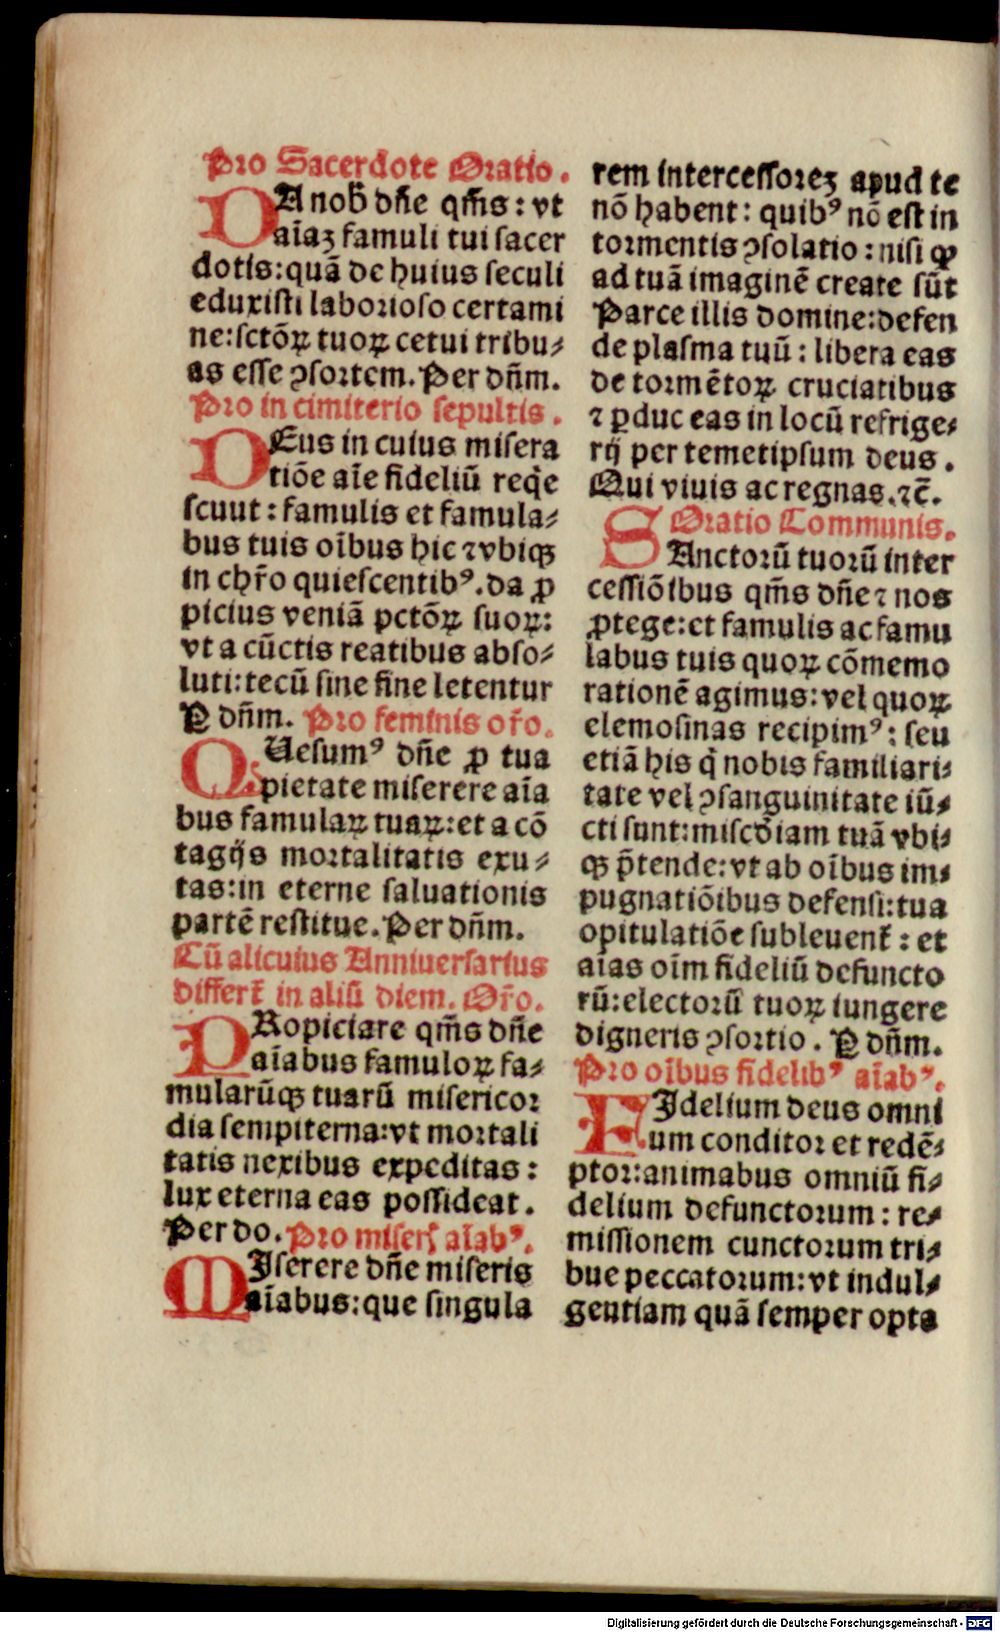 Pro Sacerdote Oratio.
DA nob̄ dn̄e qm̄s: vt
aīaꝫ famuli tui sacer
dotis: quā de huius seculi
eduxisti laborioso certami
ne: sctōꝝ tuoꝝ cetui tribu⸗
as esse ꝯsortem. Per dn̄m.
Pro in cimiterio sepultis.
DEus in cuius misera
tiōe aīe fideliū req̄e
scuut: famulis et famula⸗
bus tuis oībus hic ⁊ vbiqꝫ
in chr̄o quiescentibꝰ. da ꝓ
picius veniā pctōꝝ suoꝝ:
vt a cūctis reatibus abso⸗
luti: tecū sine fine letentur
P dn̄m. Pro feminis or̄o.
QUesumꝰ dn̄e ꝓ tua
pietate miserere aīa
bus famulaꝝ tuaꝝ: et a cō
tagijs mortalitatis exu⸗
tas: in eterne saluationis
partē restitue. Per dn̄m.
Cū alicuius Anniuersarius
differt᷑ in aliū diem. Or̄o.
PRopiciare qm̄s dn̄e
aīabus famuloꝝ fa⸗
mularūqꝫ tuarū misericor
dia sempiterna: vt mortali
tatis nexibus expeditas:
lux eterna eas possideat.
Per do. Pro miser̄ aīabꝰ.
MIserere dn̄e miseris
aīabus: que singula
rem intercessoreꝫ apud te
nō habent: quibꝰ nō est in
tormentis ꝯsolatio: nisi qꝫ
ad tuā imaginē create sūt
Parce illis domine: defen
de plasma tuū: libera eas
de tormētoꝝ cruciatibus
⁊ ꝑduc eas in locū refrige⸗
rij per temetipsum deus.
Qui viuis ac regnas. ⁊c̄.
Oratio Communis.
SAnctorū tuorū inter
cessiōibus qm̄s dn̄e ⁊ nos
ꝓtege: et famulis ac famu
labus tuis quoꝝ cōmemo
rationē agimus: vel quoꝝ
elemosinas recipimꝰ: seu
etiā his q̄ nobis familiari⸗
tate vel ꝯsanguinitate iū⸗
cti sunt: miscd̄iam tuā vbi⸗
qꝫ p̄tende: vt ab oībus im⸗
pugnatiōibus defensi: tua
opitulatiōe subleuent᷑: et
aīas oīm fideliū defuncto
rū: electorū tuoꝝ iungere
digneris ꝯsortio. P dn̄m.
Pro oībus fidelibꝰ aīabꝰ.
FIdelium deus omni
um conditor et redē⸗
ptor: animabus omniū fi⸗
delium defunctorum: re⸗
missionem cunctorum tri⸗
bue peccatorum: vt indul⸗
gentiam quā semper opta
Digitalisierung gefördert durch die Deutsche Forschungsgemeinschaft - DFG